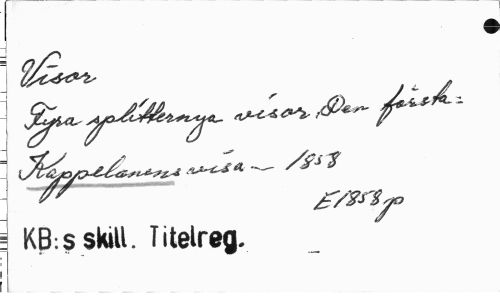 Visor
Fyra splitternya visor. Den första =
Kappelanens visa — 1858
E1858p
KB:s skill. Titelreg.